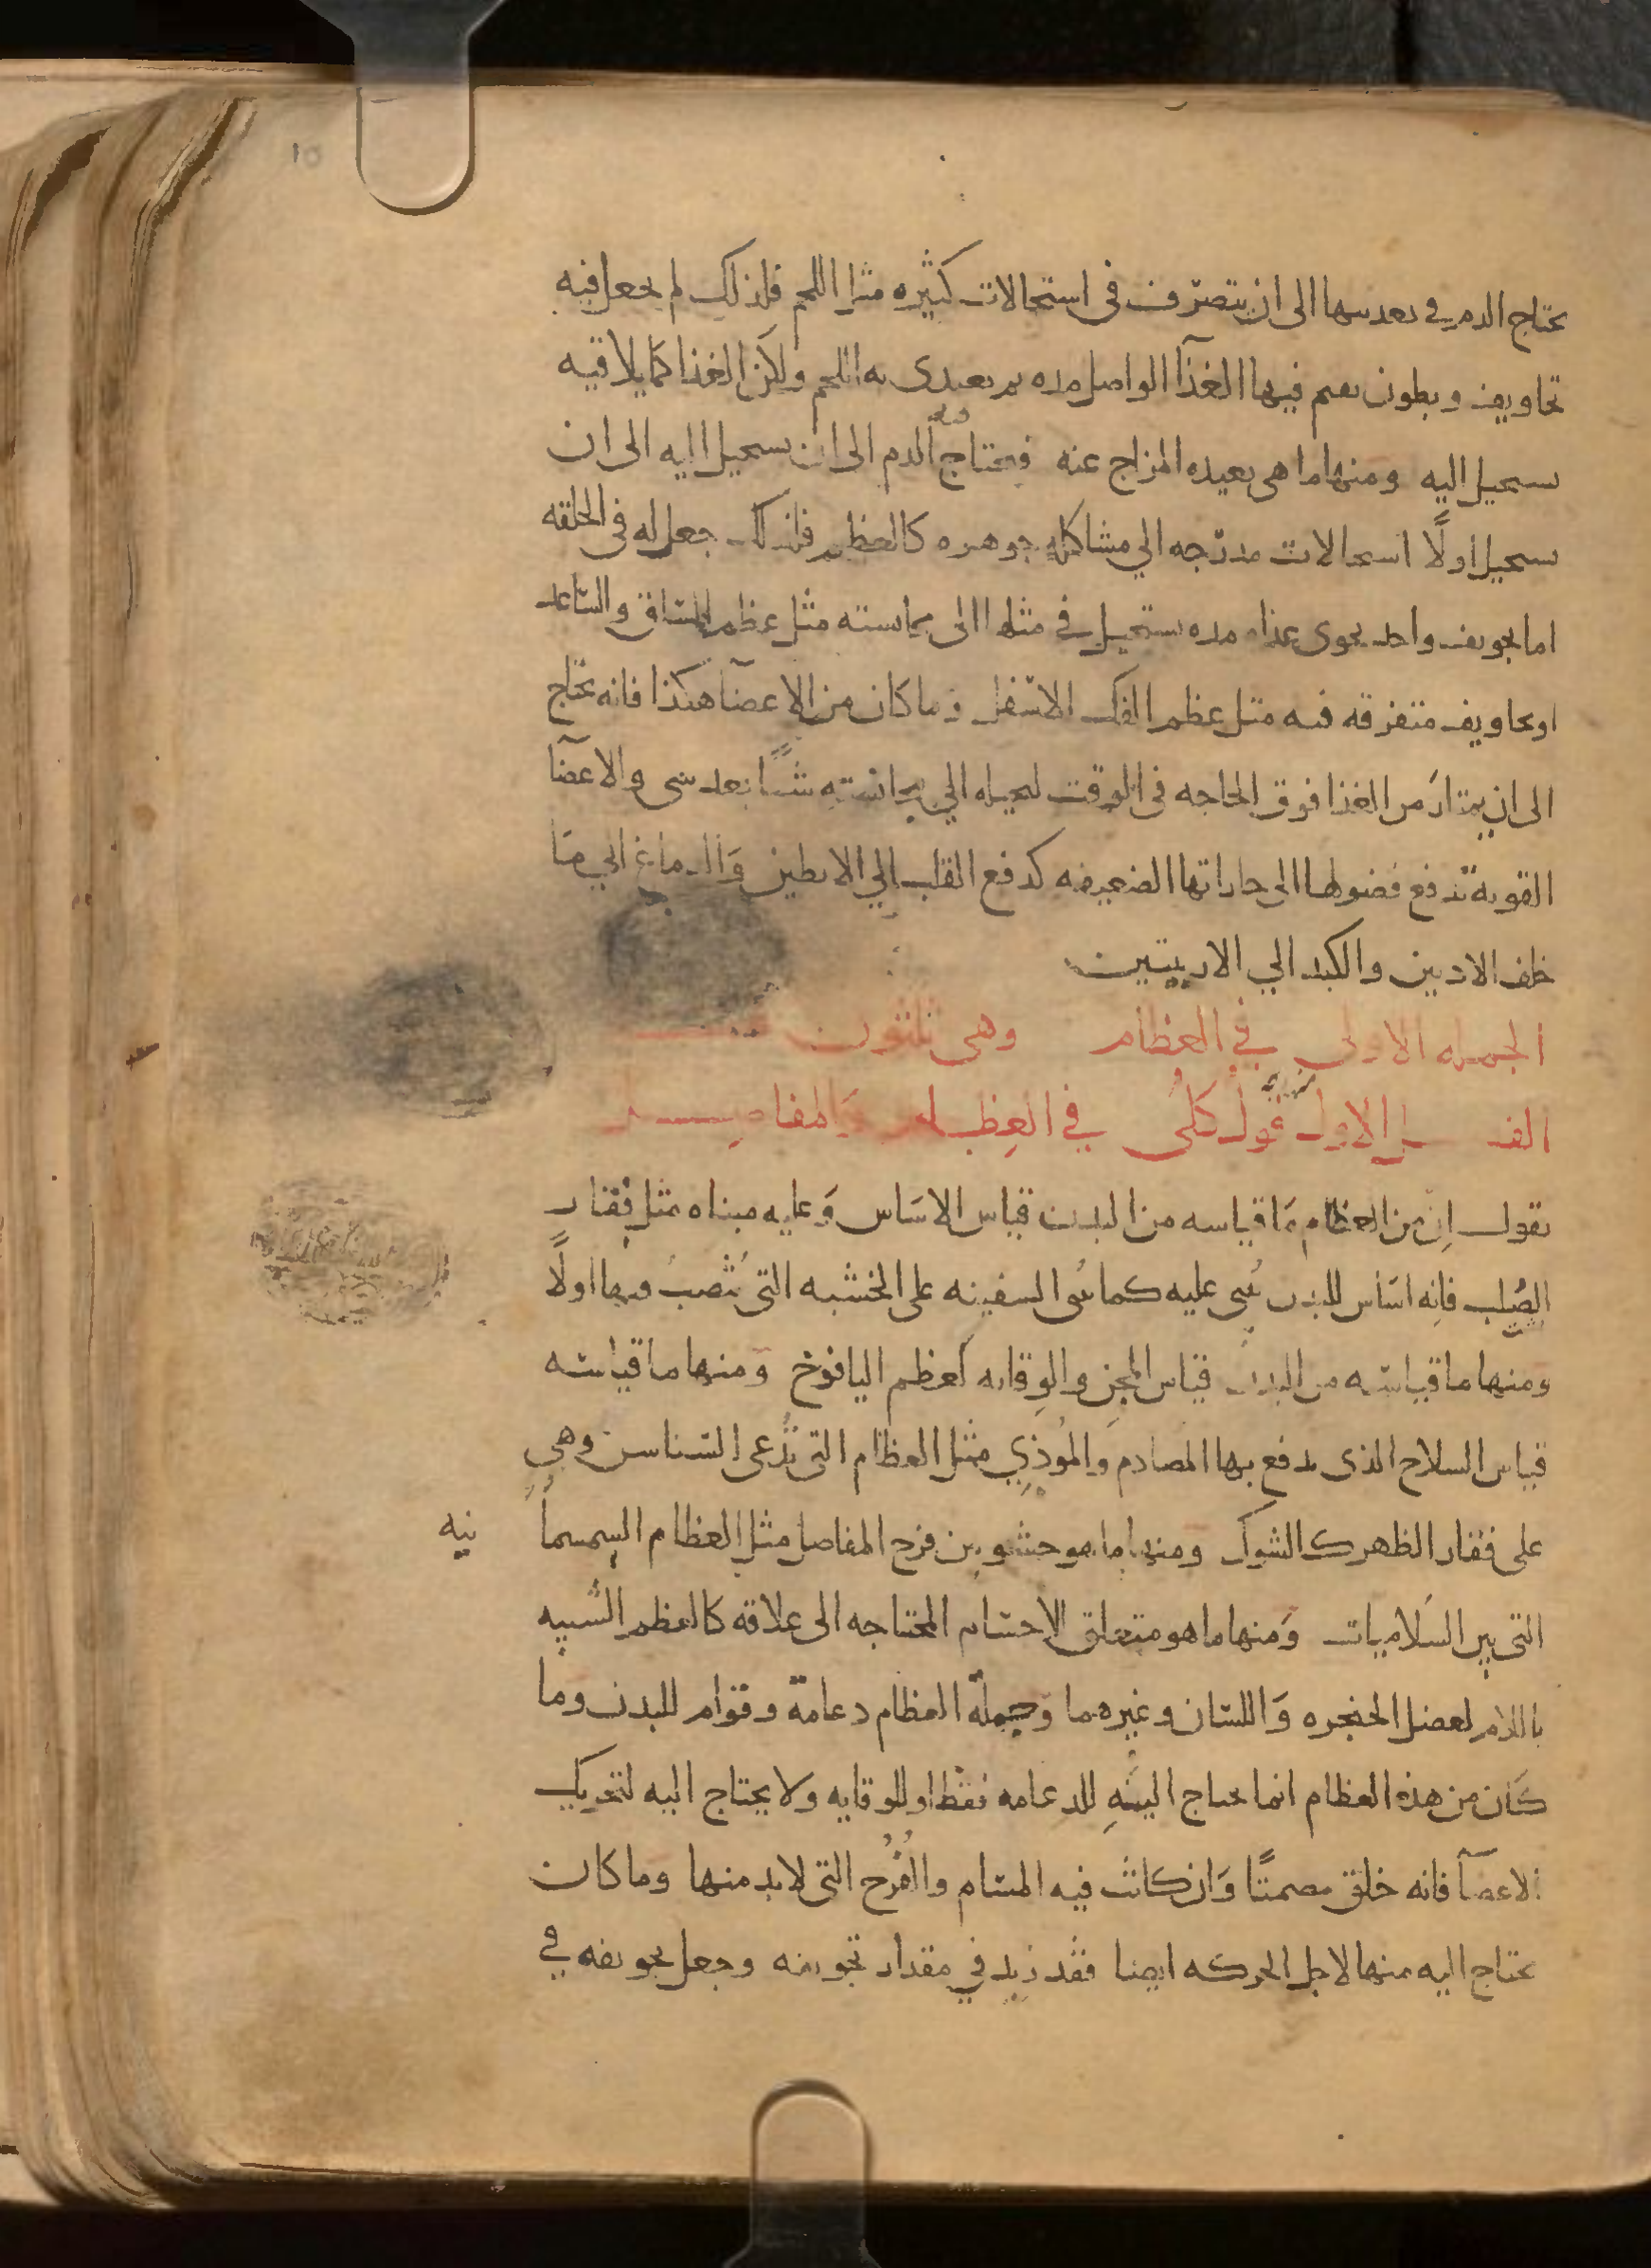 يحتاج الدم في تغذيتها الى ان يتصرف في استحالات كثيره مثل اللحم فلذلك لم يجعل فيه
تجاويف وبطون يقيم فيها الغذآ الواصل مده ثم يغتدى به اللحم ولكن الغذا كما يلاقيه
يستحيل اليه ومنها ما هى بعيده المزاج عنه فيحتاج الدم الى ان يستحيل اليه الى ان
يستحيل اولًا استحالات مدرجه الي مشاكله جوهره كالعظم فلذلك جعل له في الخلقه
اما تجويف واحد يحوى غذاه مده يستحيل في مثلها الى مجانسته مثل عظم الساق والساعد
او تجاويف متفرقه فيه مثل عظم الفك الاسفل وما كان من الاعضآ هكذا فانه يحتاج
الى ان يمتار من الغذا فوق الحاجه في الوقت ليحيله الي مجانسته شيًا بعد شى والاعضآ
القويه تدفع فضولها الى جاراتها الضعيفه كدفع القلب الي الابطين والدماغ الي ما
خلف الاذنين والكبد الي الاربيتين
الجمله الاولى في العظام وهى ثلثون
الفصل الاول قول كلى في العظام والمفاصل
نقول ان من العظام ما قياسه من البدن قياس الاساس وعليه مبناه مثل فقار
الصلب فانه اساس للبدن يبنى عليه كما تبنى السفينه على الخشبه التى تنصب فيها اولًا
ومنها ما قياسه من البدن قياس المجن والوقايه كعظم اليافوخ ومنها ما قياسه
قياس السلاح الذى يدفع بها المصادم والموذي مثل العظام التى تدعى السناسن وهى
على فقار الظهر كالشوك ومنها ما هو حشو بين فرج المفاصل مثل العظام السمسما نيه
التى بين السلاميات ومنها ما هو متعلق الاجسام المحتاجه الى علاقه كالعظم الشبيه
باللام لعضل الحنجره واللسان وغيرهما وجملة العظام دعامة وقوام للبدن وما
كان من هذه العظام انما يحتاج اليه للدعامه فقط او للوقايه ولا يحتاج اليه لتحريك
الاعضآ فانه خلق مصمتًا وان كانت فيه المسام والفرج التى لابد منها وما كان
يحتاج اليه منها لاجل الحركه ايضا فقد زيد في مقدار تجويفه وجعل تجويفه في